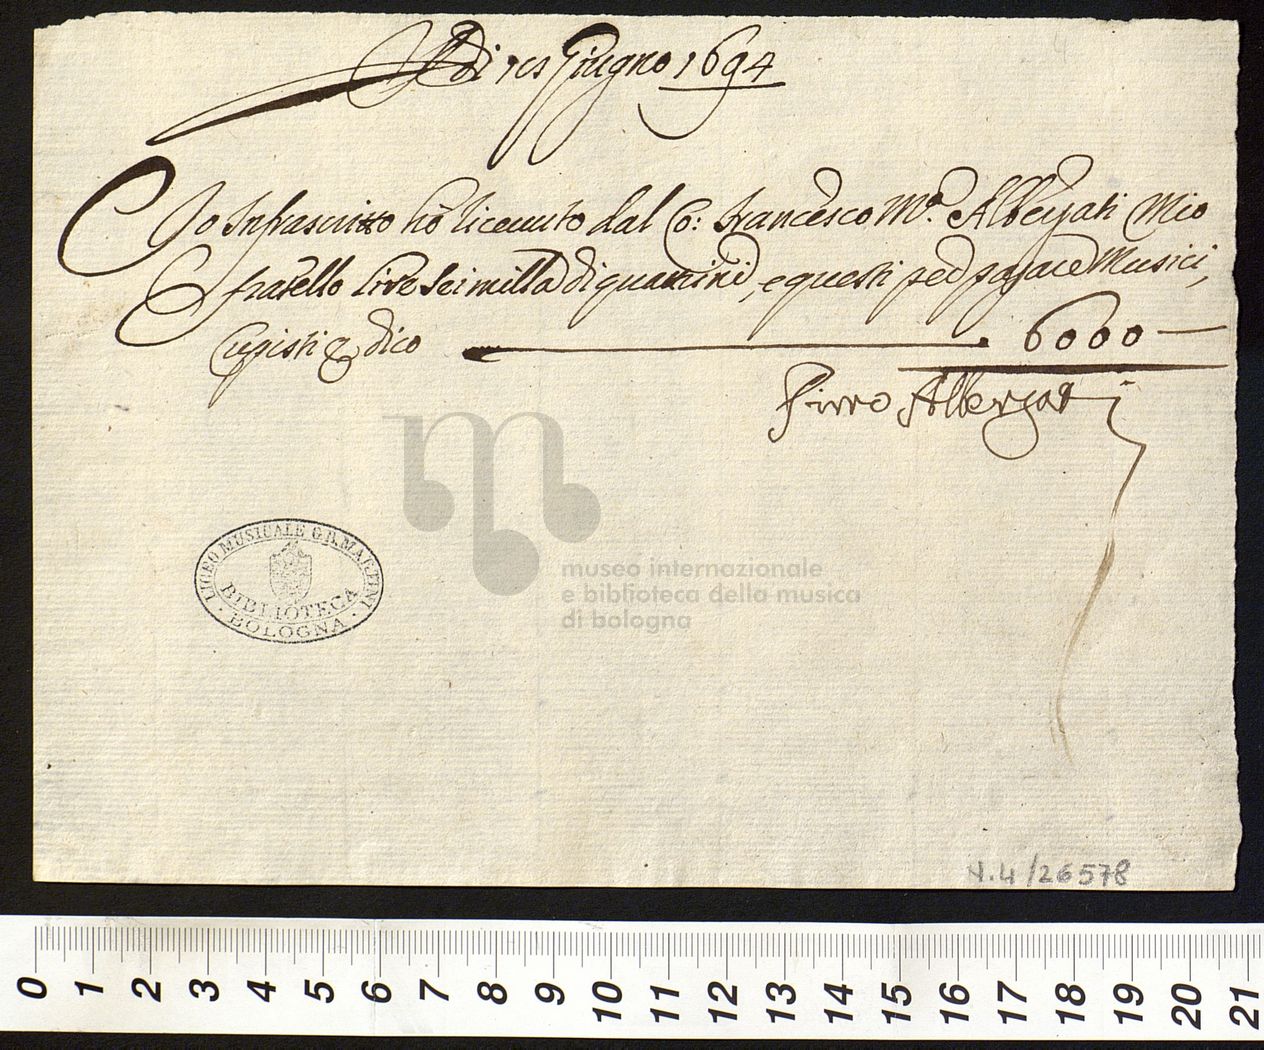 Adi Giugno 1694
Io Infrascritto hò riceuuto dal Co: Francesco Mª. Albergati Mio
fratello lire sei milla di quattrini, e questi per pagare Musici,
e dico 6000
Pirro Albergati
museo internazionale
e biblioteca della musica
di bologna
LICEO MUSICALE G.B. MARTINI
BIBLIOTECA
BOLOGNA
N.4/26578
0 1 2 3 4 5 6 7 8 9 10 11 12 13 14 15 16 17 18 19 20 21